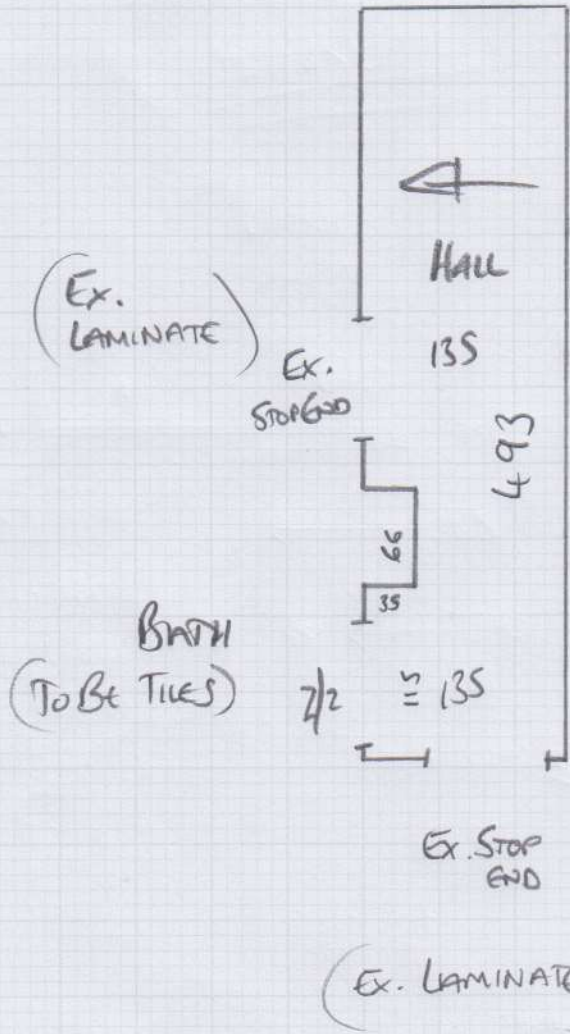 HALL
(EX.
LAMINATE)
135
EX.
STOPEND
493
66
35
BATH
(TO BE TILES)
135
EX. STOP
END
(EX. LAMINATE